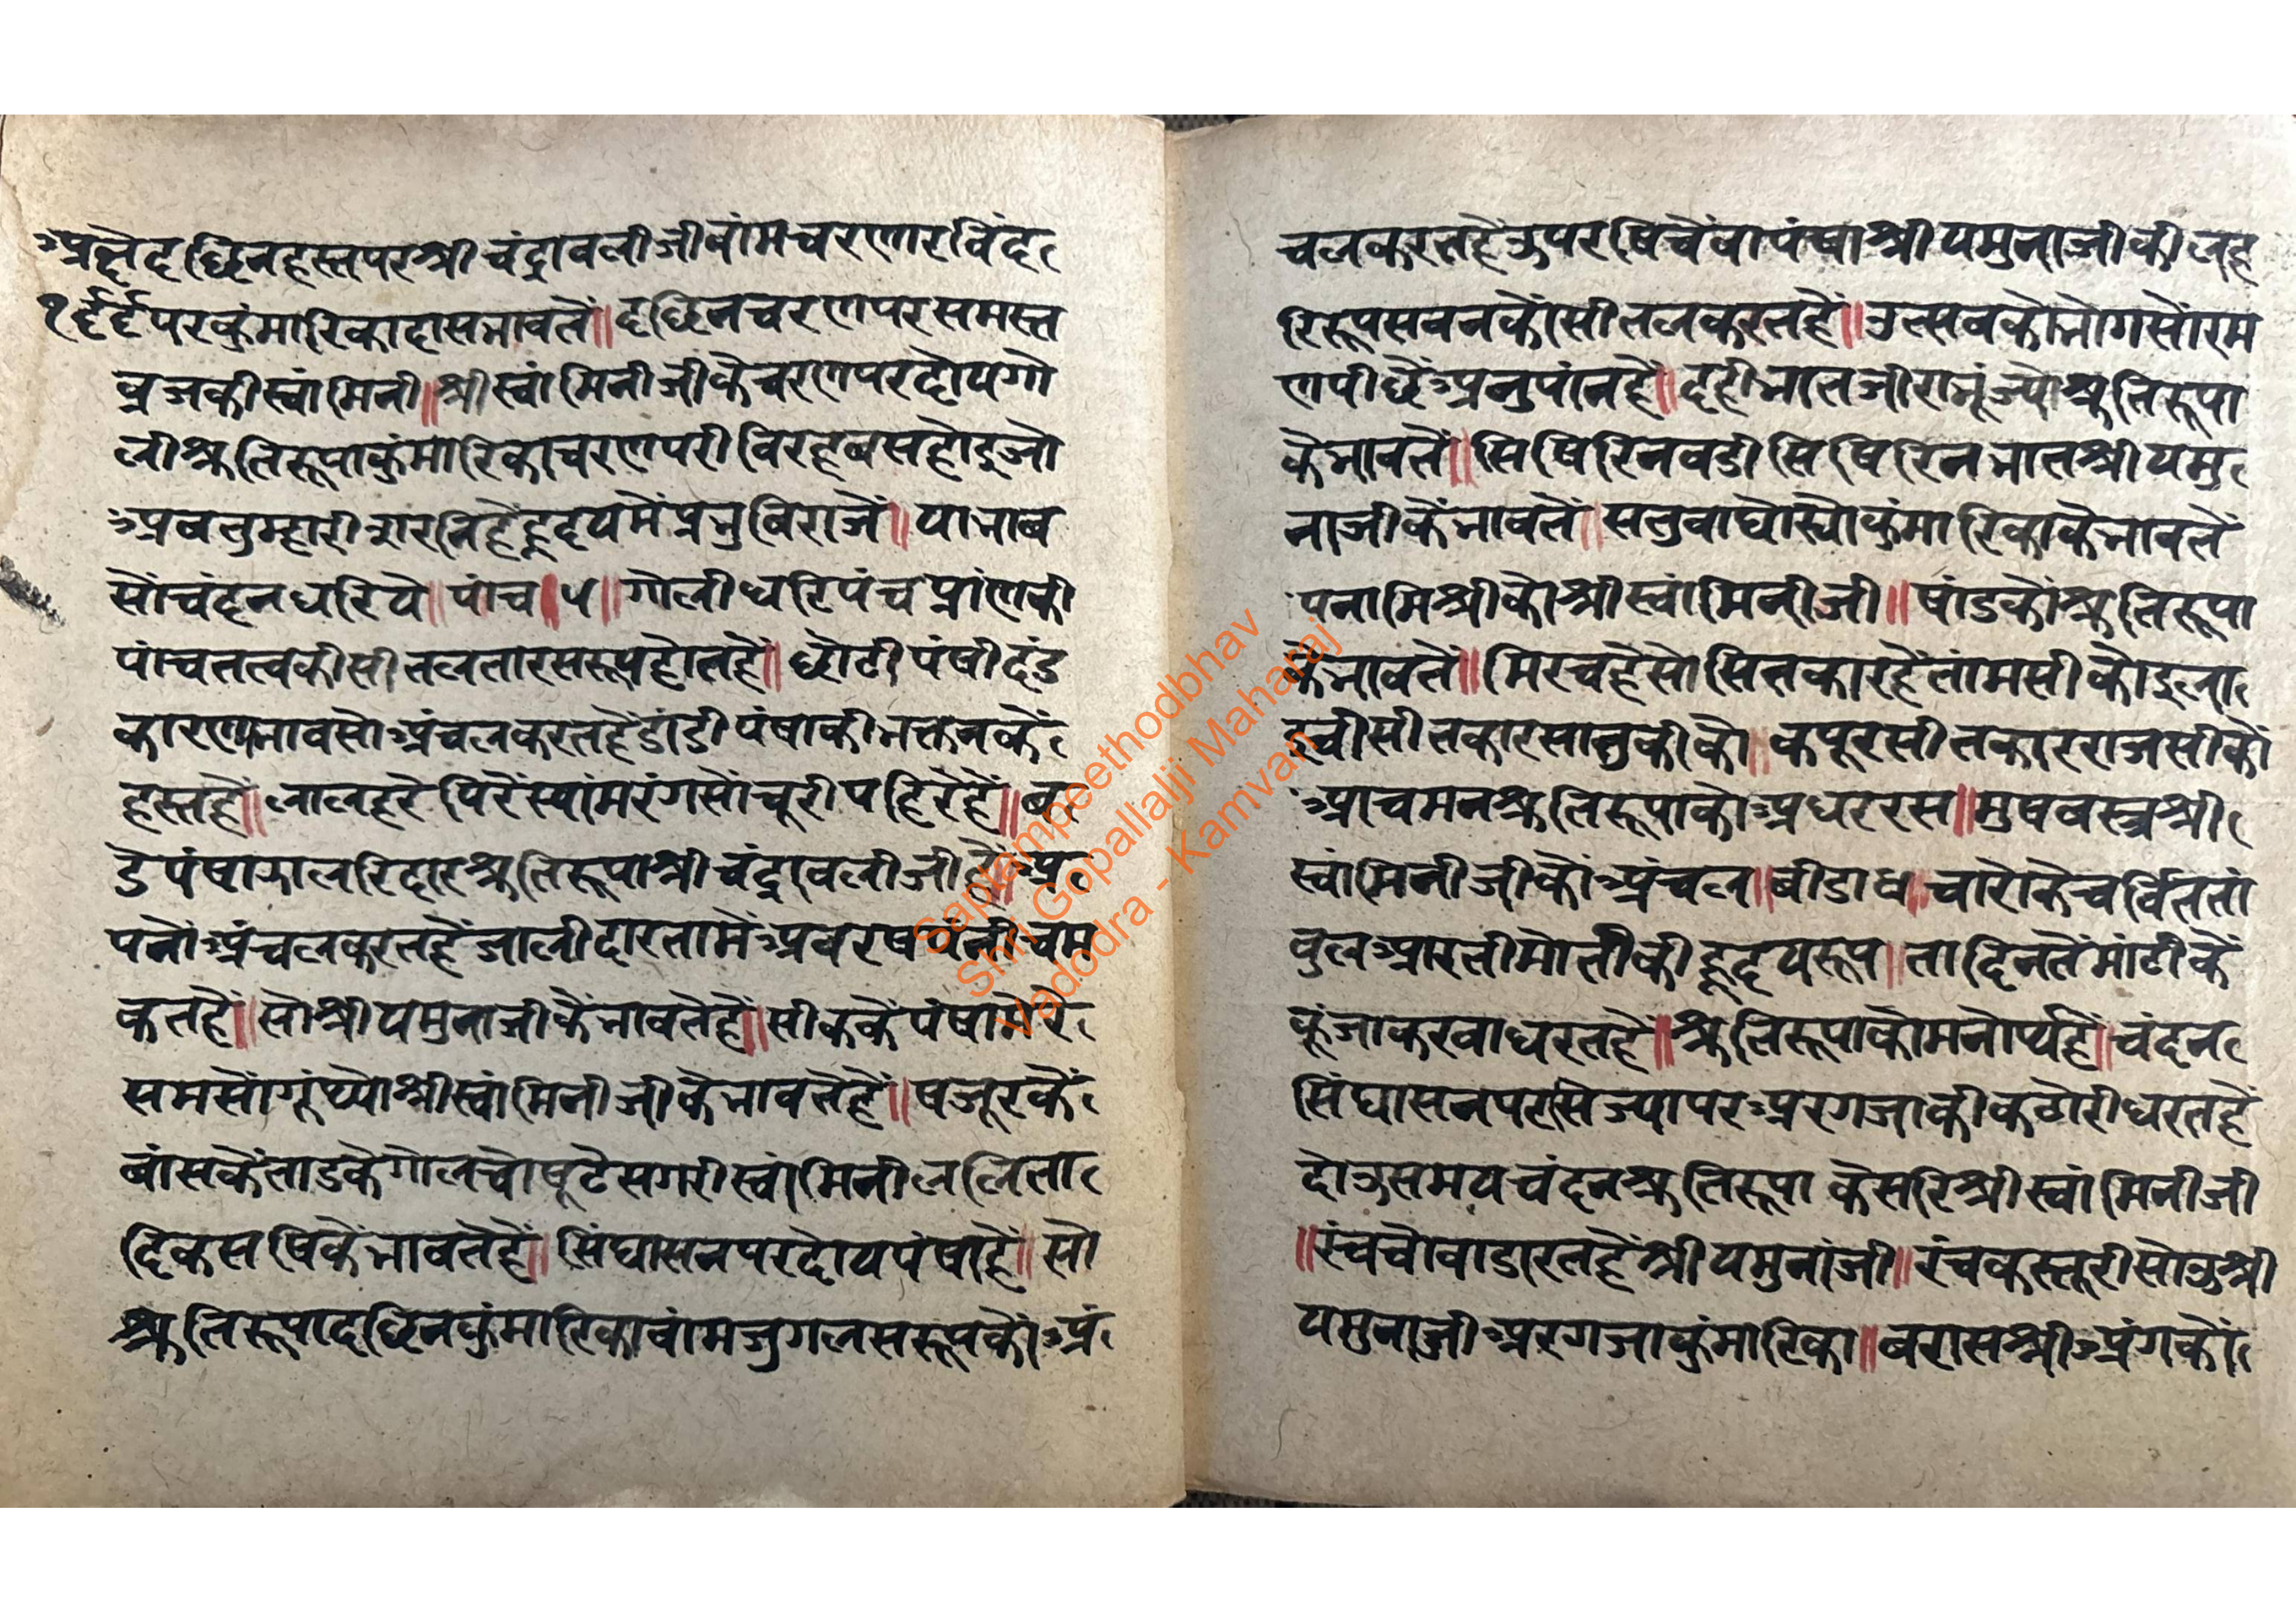 अक्षै दछिन हस्त पर श्री चंद्रावली जी बांम चरणारविंद
१९ पर कुंमारिका दास भावतें॥ दछिन चरण पर समस्त
व्रज की स्वांमिनी॥ श्री स्वांमिनी जी कै चरण पर दोय गो
ली श्रुतिरूपा कुंमारिका चरण परी विरह बस होउ जो
अब तुम्हारी सरनि हैं हृदय में प्रभु बिराजें॥ या भाब
सों चंदन धरिये॥ पांच॥ ५॥ गोली धरि पंच प्रांण की
पांच तत्व की सीतलता रस रूप होत हैं॥ छोटी पंषी दंड
कारण्य भाव सो अंचल करत हैं डांडी पंषा की भक्तन के
हस्त हैं॥ लाल हरे पिरें स्यांम रंग सों चूरी पहिरें हैं॥ ब
डे पंषा झालरिदार श्रुतिरूपा श्री चंद्रावली जी हैं॥ अ
पनों अंचल करत हैं जाली दार तामें अबरष चम
कत हैं॥ सो श्री यमुना जी कें भाव तें हैं॥ सीक कें पंषा
सम सों गूंथ्यो श्री स्वांमिनी जी कें भाव तें हैं॥ षजूर कें
बांस कें ताड कें गोल चोषूटे सगरी स्वांमिनी ललिता
दिक सषि कें भाव तें हैं॥ सिंघासन पर दोय पंषा हैं॥ सो
श्रुतिरूपा दछिन कुंमारिका वांम जुगल सरूप कों अं
चल करत हैं ऊपर षिचें वा पंषा श्री यमुना जी की लह
रि रूप सबन कों सीतल करत हैं॥ उत्सव को भोग सों रम
ण पीछें अनुपांन हैं॥ दही भात जीरा भूंज्यो श्रुतिरूपा
कें भाव तें॥ सिषिरिन वडी सिषिरिन भात श्री यमु
ना जी कें भाव तें॥ सतुवा घोस्यो कुंमारिका कें भाव तें
पना मिश्री को श्री स्वांमिनी जी॥ षांड कों श्रुतिरूपा
कें भाव तें॥ मिरच है सो सितकार हैं तांमसी को इला
इची सीतकार सातुकी को॥ कपूर सीतकार राजसी कों
आचमन श्रुतिरूपा को अधर रस॥ मुष वस्त्र श्री
स्वांमिनी जी कों अंचल॥ बीडा ४॥ चारो के चर्वित तां
वुल आरती मोती की हृदय रूप॥ ता दिन तें मांटी कें
कूंजा करवा धरत हैं॥ श्रुतिरूपा को मनोर्थ हैं॥ चंदन
सिंघासन पर सिज्या पर अरगजा की कटोरी धरत हैं
दोऊ समय चंदन श्रुतिरूपा केसरि श्री स्वांमिनी जी
॥ रंच चोवा डारत हैं श्री यमुनां जी॥ रंच कस्तूरी सोऊ श्री
यमुना जी अरगजा कुंमारिका॥ बरास श्री अंग कों
Saptampeethodbhav
Shri Gopallalji Maharaj
Vadodra - Kamvan